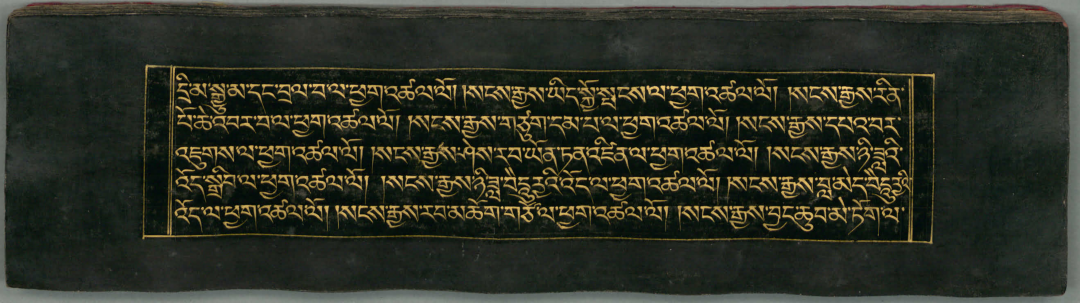 དྲི་མ་སྒྱུ་མ་དང་བྲལ་བ་ལ་ཕྱག་འཚལ་ལོ། །སངས་རྒྱས་ཡིད་སྐྱོ་སྤངས་ལ་ཕྱག་འཚལ་ལོ། །སངས་རྒྱས་རིན་
པོ་ཆེ་འབར་བ་ལ་ཕྱག་འཚལ་ལོ། །སངས་རྒྱས་གཙུག་དམ་པ་ལ་ཕྱག་འཚལ་ལོ། །སངས་རྒྱས་དཔའ་བར་
འཇུགས་ལ་ཕྱག་འཚལ་ལོ། །སངས་རྒྱས་ཤེས་རབ་ཡོན་ཏན་འཛིན་ལ་ཕྱག་འཚལ་ལོ། །སངས་རྒྱས་ཉི་ཟླའི་
འོད་སྒྲིབ་ལ་ཕྱག་འཚལ་ལོ། །སངས་རྒྱས་ཉི་ཟླ་བཻ་ཌཱུརྱའི་འོད་ལ་ཕྱག་འཚལ་ལོ། །སངས་རྒྱས་བླ་མེད་བཻ་ཌཱུརྱའི་
འོད་ལ་ཕྱག་འཚལ་ལོ། །སངས་རྒྱས་རབ་མཆོག་གཙོ་ལ་ཕྱག་འཚལ་ལོ། །སངས་རྒྱས་བྱང་ཆུབ་མེ་ཏོག་ལ་